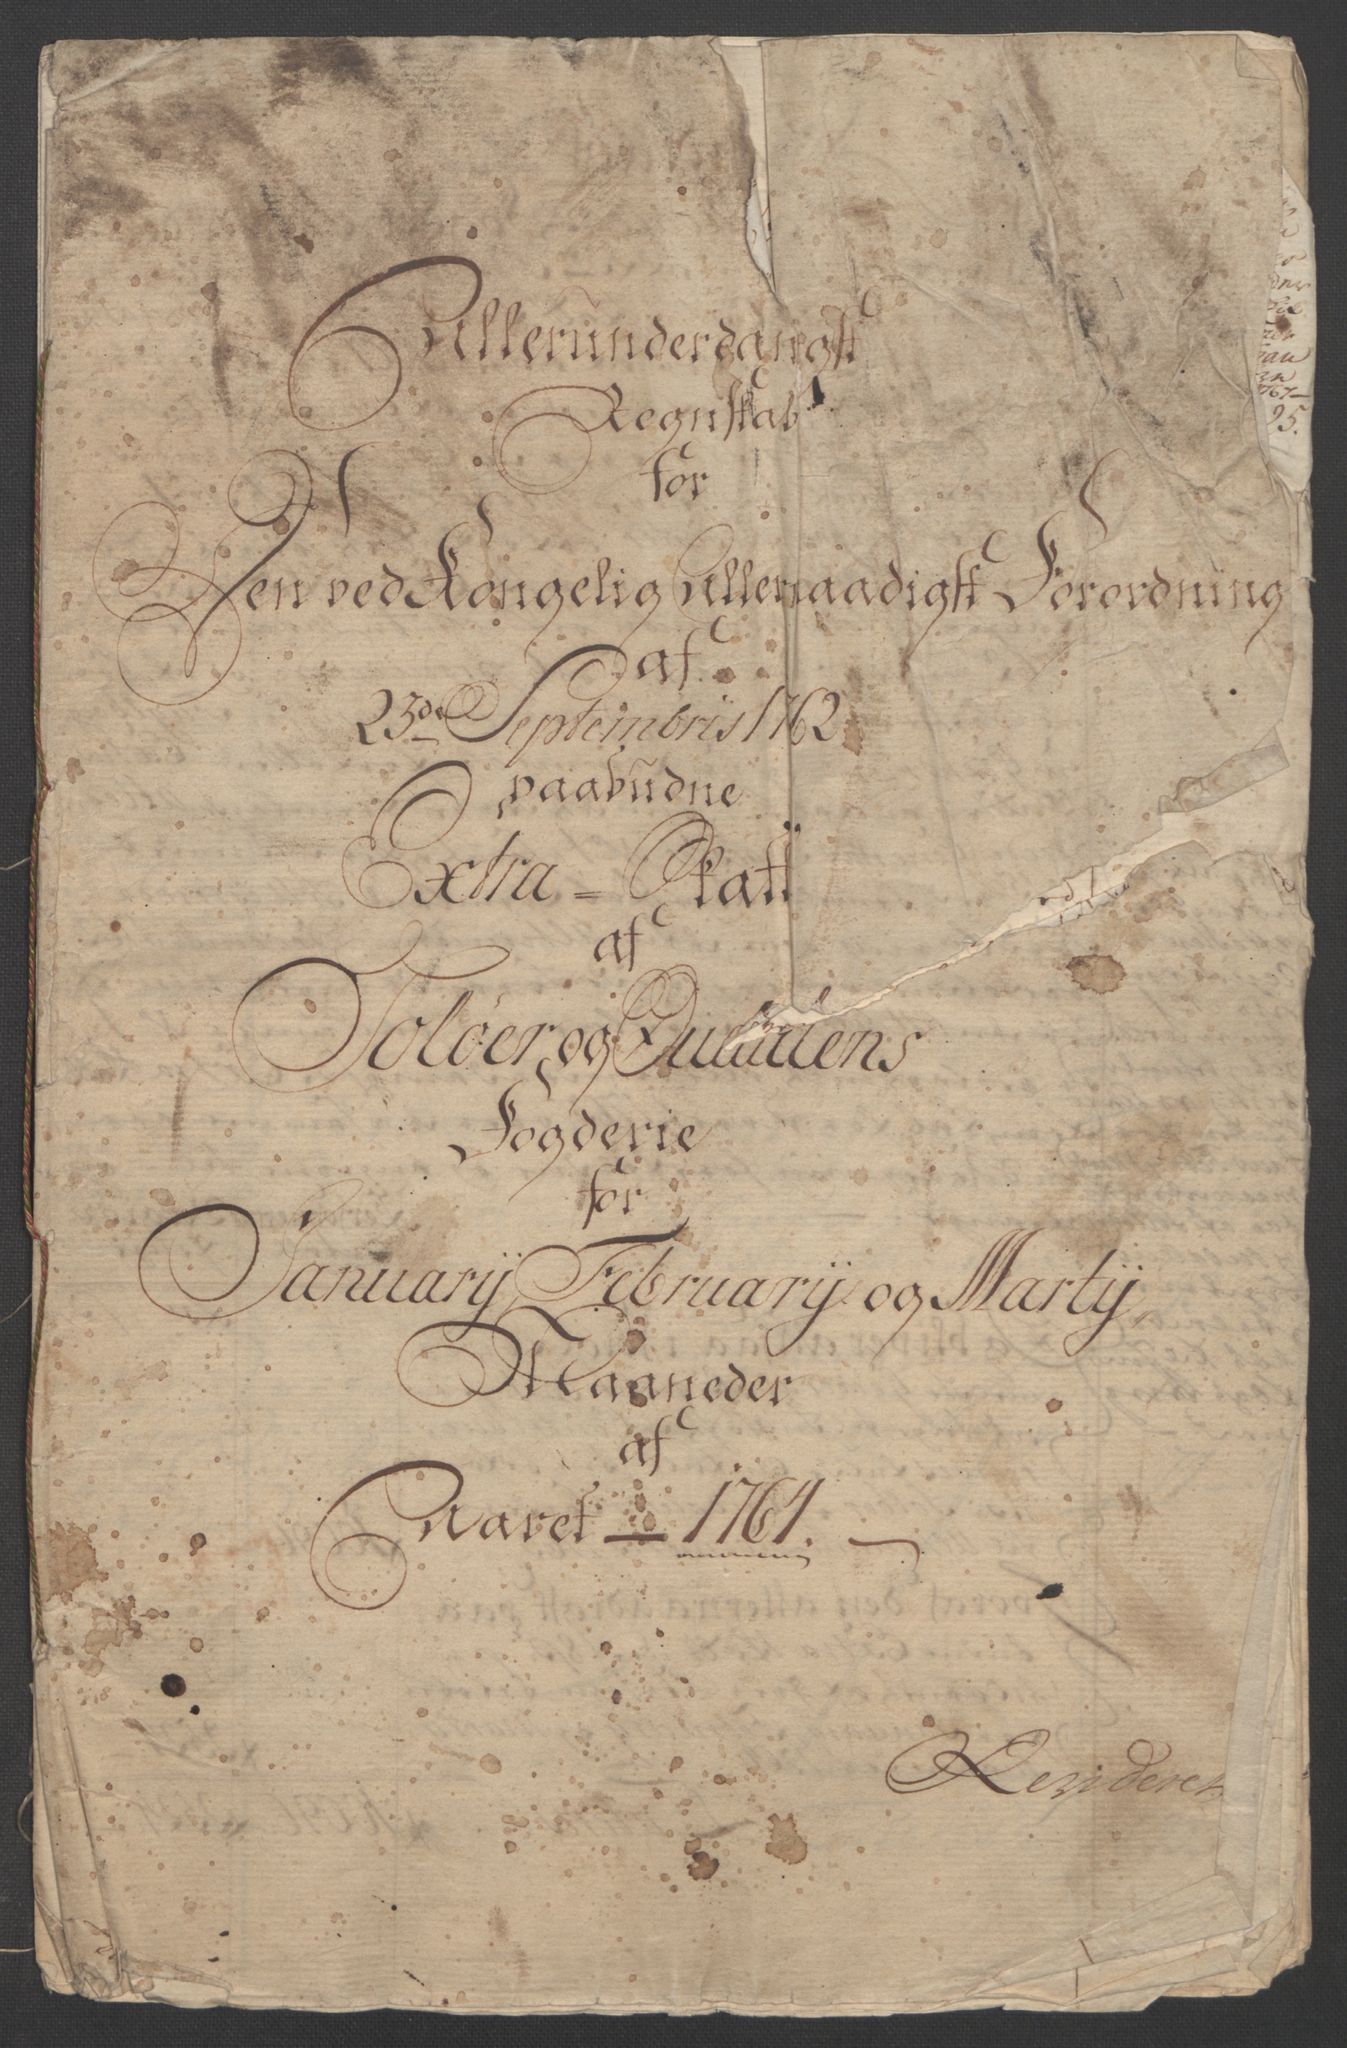 Allerunderdanigst
Regnskab
for
Den ved Kongelig Allernaadigst Forordning
af
23de Septembris 1762
paabudne
Extra = Skatt
af
Soløer og Oudalens
Fogderie
for
Januarij, Februarij og Martij
Maaneder
af
Aaret — 1764. —
Revideret